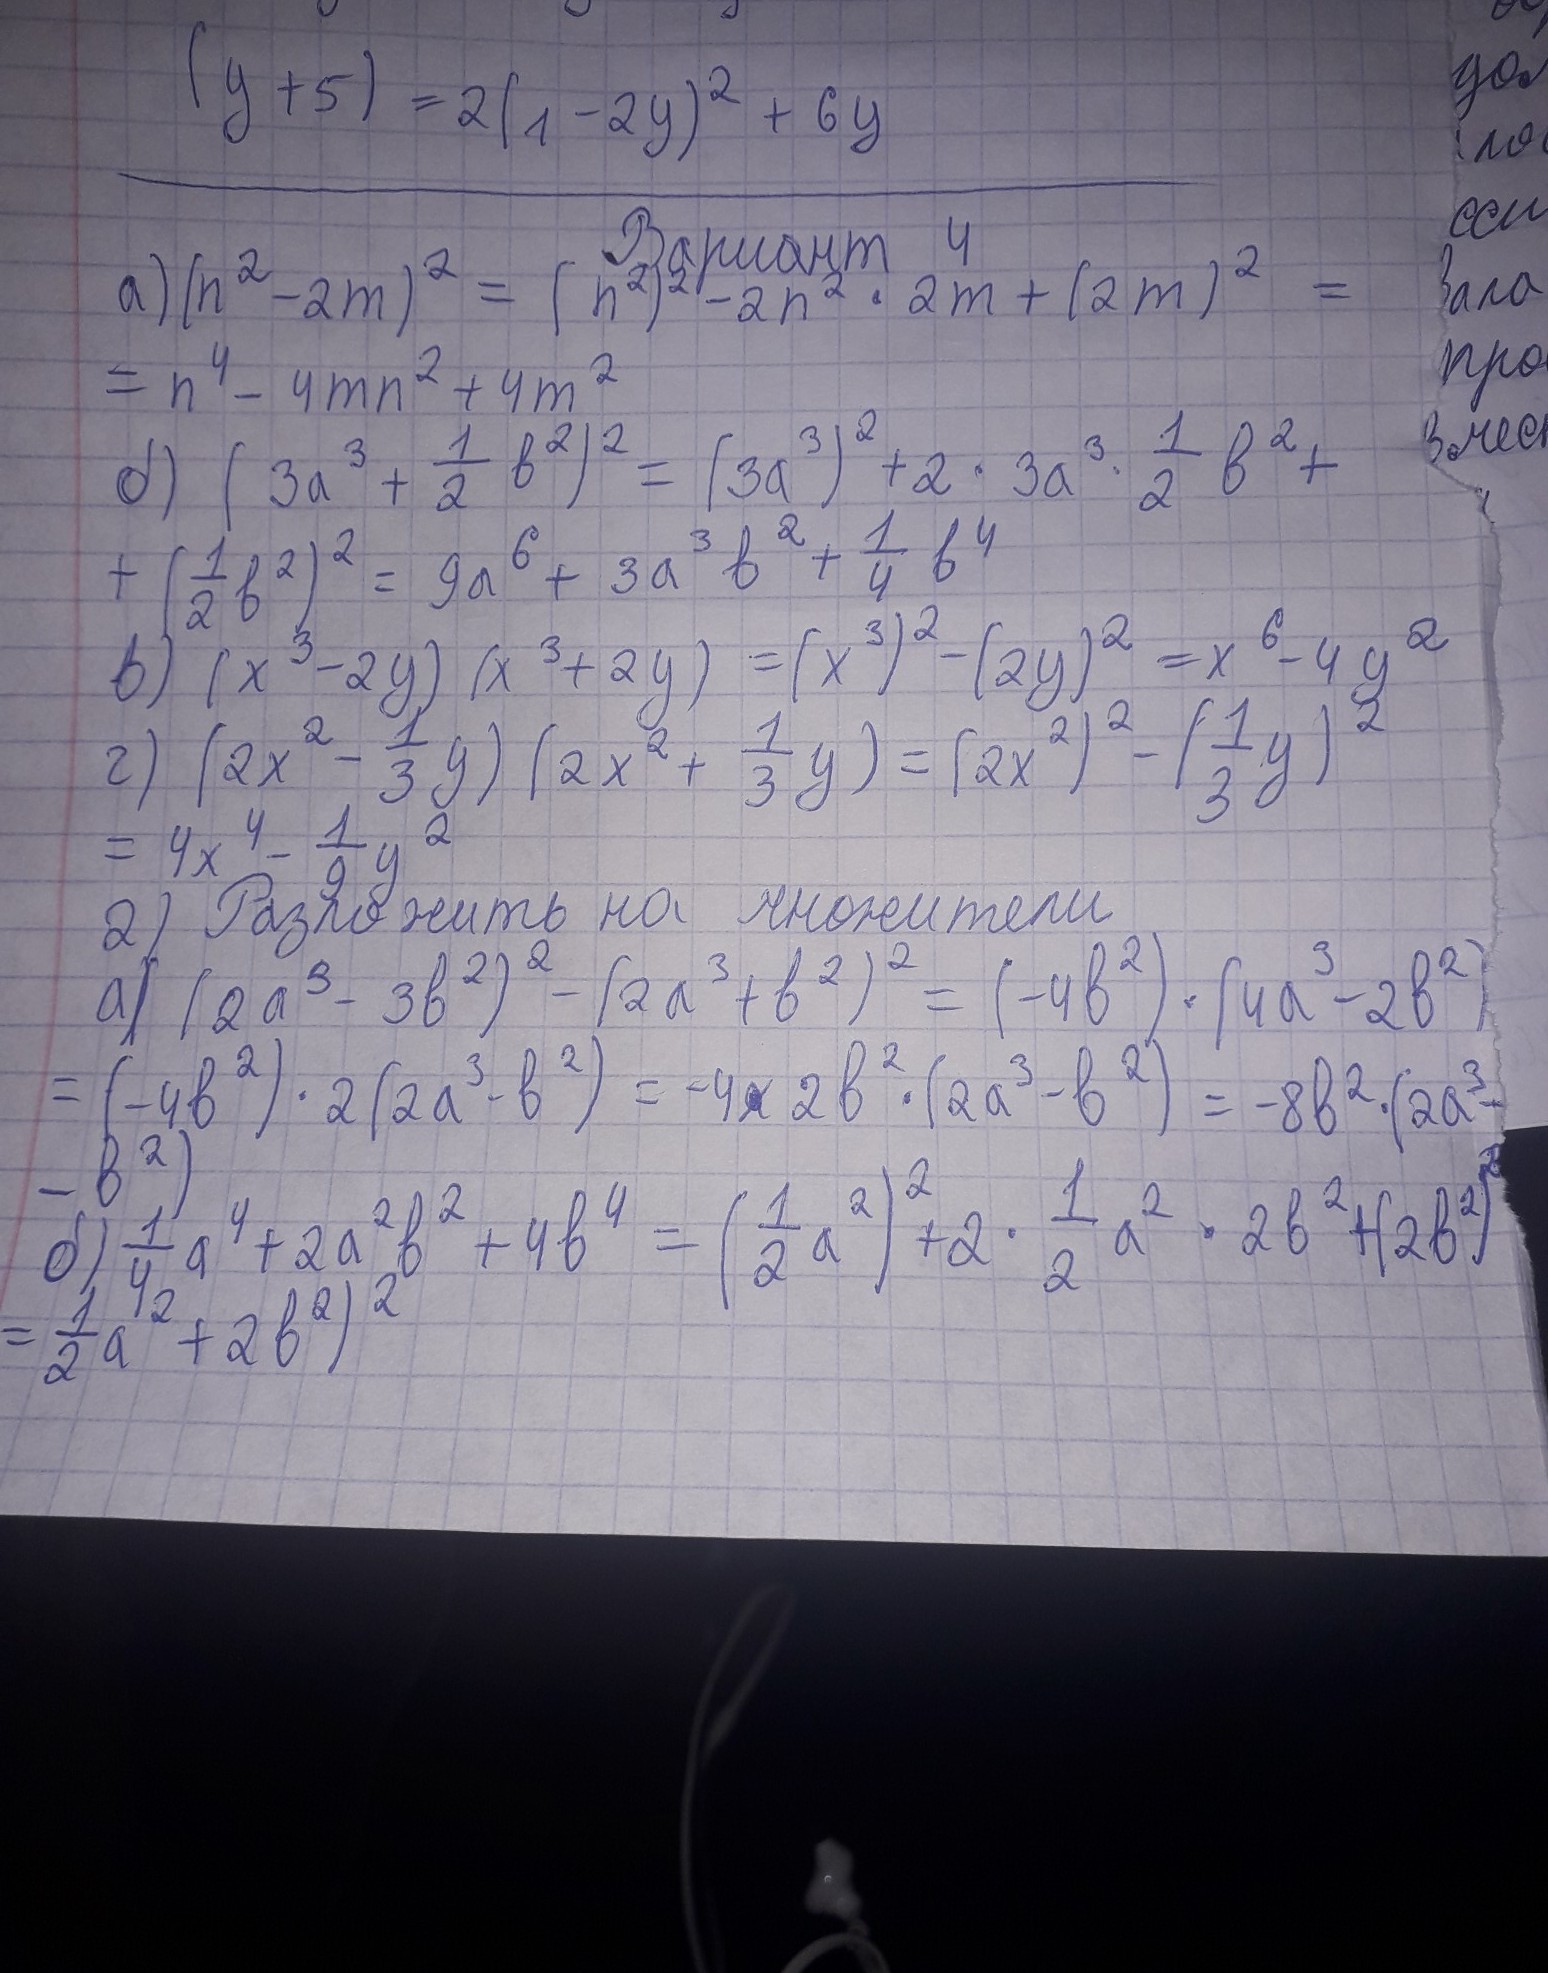 (y+5) = 2(1-2y)² + 6y
Вариант 4
а) (n² - 2m)² = (n²)² - 2n² · 2m + (2m)² =
= n⁴ - 4mn² + 4m²
б) (3a³ + 1/2 b²)² = (3a³)² + 2 · 3a³ · 1/2 b² +
+ (1/2 b²)² = 9a⁶ + 3a³b² + 1/4 b⁴
в) (x³ - 2y) (x³ + 2y) = (x³)² - (2y)² = x⁶ - 4y²
г) (2x² - 1/3 y) (2x² + 1/3 y) = (2x²)² - (1/3 y)²
= 4x⁴ - 1/9 y²
2) Разложить на множители
а) (2a³ - 3b²)² - (2a³ + b²)² = (-4b²) · (4a³ - 2b²)
= (-4b²) · 2(2a³ - b²) = -4 x 2b² · (2a³ - b²) = -8b² · (2a³ -
- b²)
б) 1/4 a⁴ + 2a²b² + 4b⁴ = (1/2 a²)² + 2 · 1/2 a² · 2b² + (2b²)²
= 1/2 a² + 2b²)²